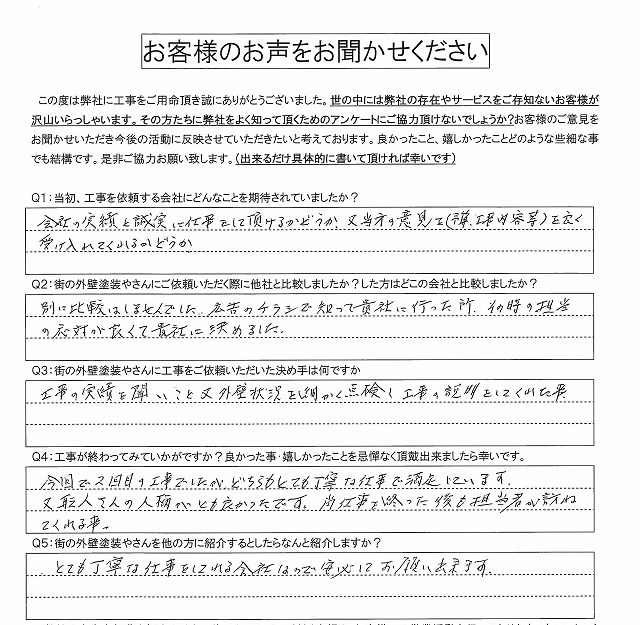 お客様のお声をお聞かせください
この度は弊社に工事をご用命頂き誠にありがとうございました。世の中には弊社の存在やサービスをご存知ないお客様が
沢山いらっしゃいます。その方たちに弊社をよく知って頂くためのアンケートにご協力頂けないでしょうか?お客様のご意見を
お聞かせいただき今後の活動に反映させていただきたいと考えております。良かったこと、嬉しかったことどのような些細な事
でも結構です。是非ご協力お願い致します。(出来るだけ具体的に書いて頂ければ幸いです)
Q1:当初、工事を依頼する会社にどんなことを期待されていましたか?
会社の実績と誠実に仕事をして頂けるかどうか、又当方の意見を(工事内容等)を広く
受け入れてくれるかどうか
Q2:街の外壁塗装やさんにご依頼いただく際に他社と比較しましたか?した方はどこの会社と比較しましたか?
別に比較はしませんでした。広告のチラシで知って貴社に行った所、その時の担当
の応対が良くて貴社に決めました。
Q3:街の外壁塗装やさんに工事をご依頼いただいた決め手は何ですか
工事の実績を聞いたこと又外壁状況を細かく点検し工事の説明をしてくれた事
Q4:工事が終わってみていかがですか?良かった事・嬉しかったことを忌憚なく頂戴出来ましたら幸いです。
今回で2回目の工事でしたが、どちらもとても丁寧な仕事で満足しています。
又職人さんの人柄がとも良かったです。尚仕事が終った後も担当者が訪ね
てくれる事。
Q5:街の外壁塗装やさんを他の方に紹介するとしたらなんと紹介しますか?
とても丁寧な仕事をしてれる会社なので安心してお願い出来ます。